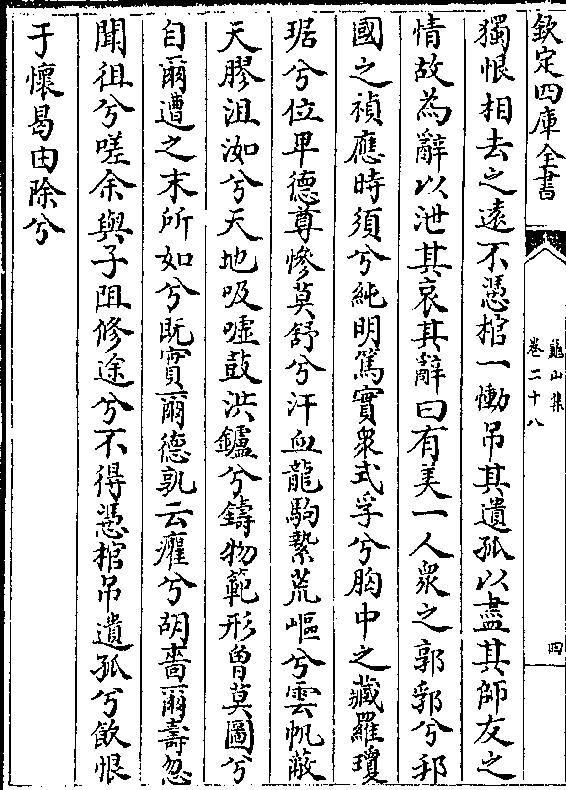 欽定四庫全書
龜山集
卷二十八
四
獨恨相去之遠不憑棺一慟吊其遺孤以盡其師友之
情故為辭以泄其哀其辭曰有美一人衆之郛郭兮邦
國之禎應時須兮純明篤實衆式孚兮胸中之藏羅瓊
琚兮位卑德尊慘莫舒兮汗血龍駒縶荒嶇兮雲帆蔽
天膠沮洳兮天地吸嘘鼓洪鑪兮鑄物範形曽莫圖兮
自爾遭之末所如兮既實爾德孰云癯兮胡嗇爾壽忽
聞徂兮嗟余與子阻修途兮不得憑棺吊遺孤兮飲恨
于懷曷由除兮